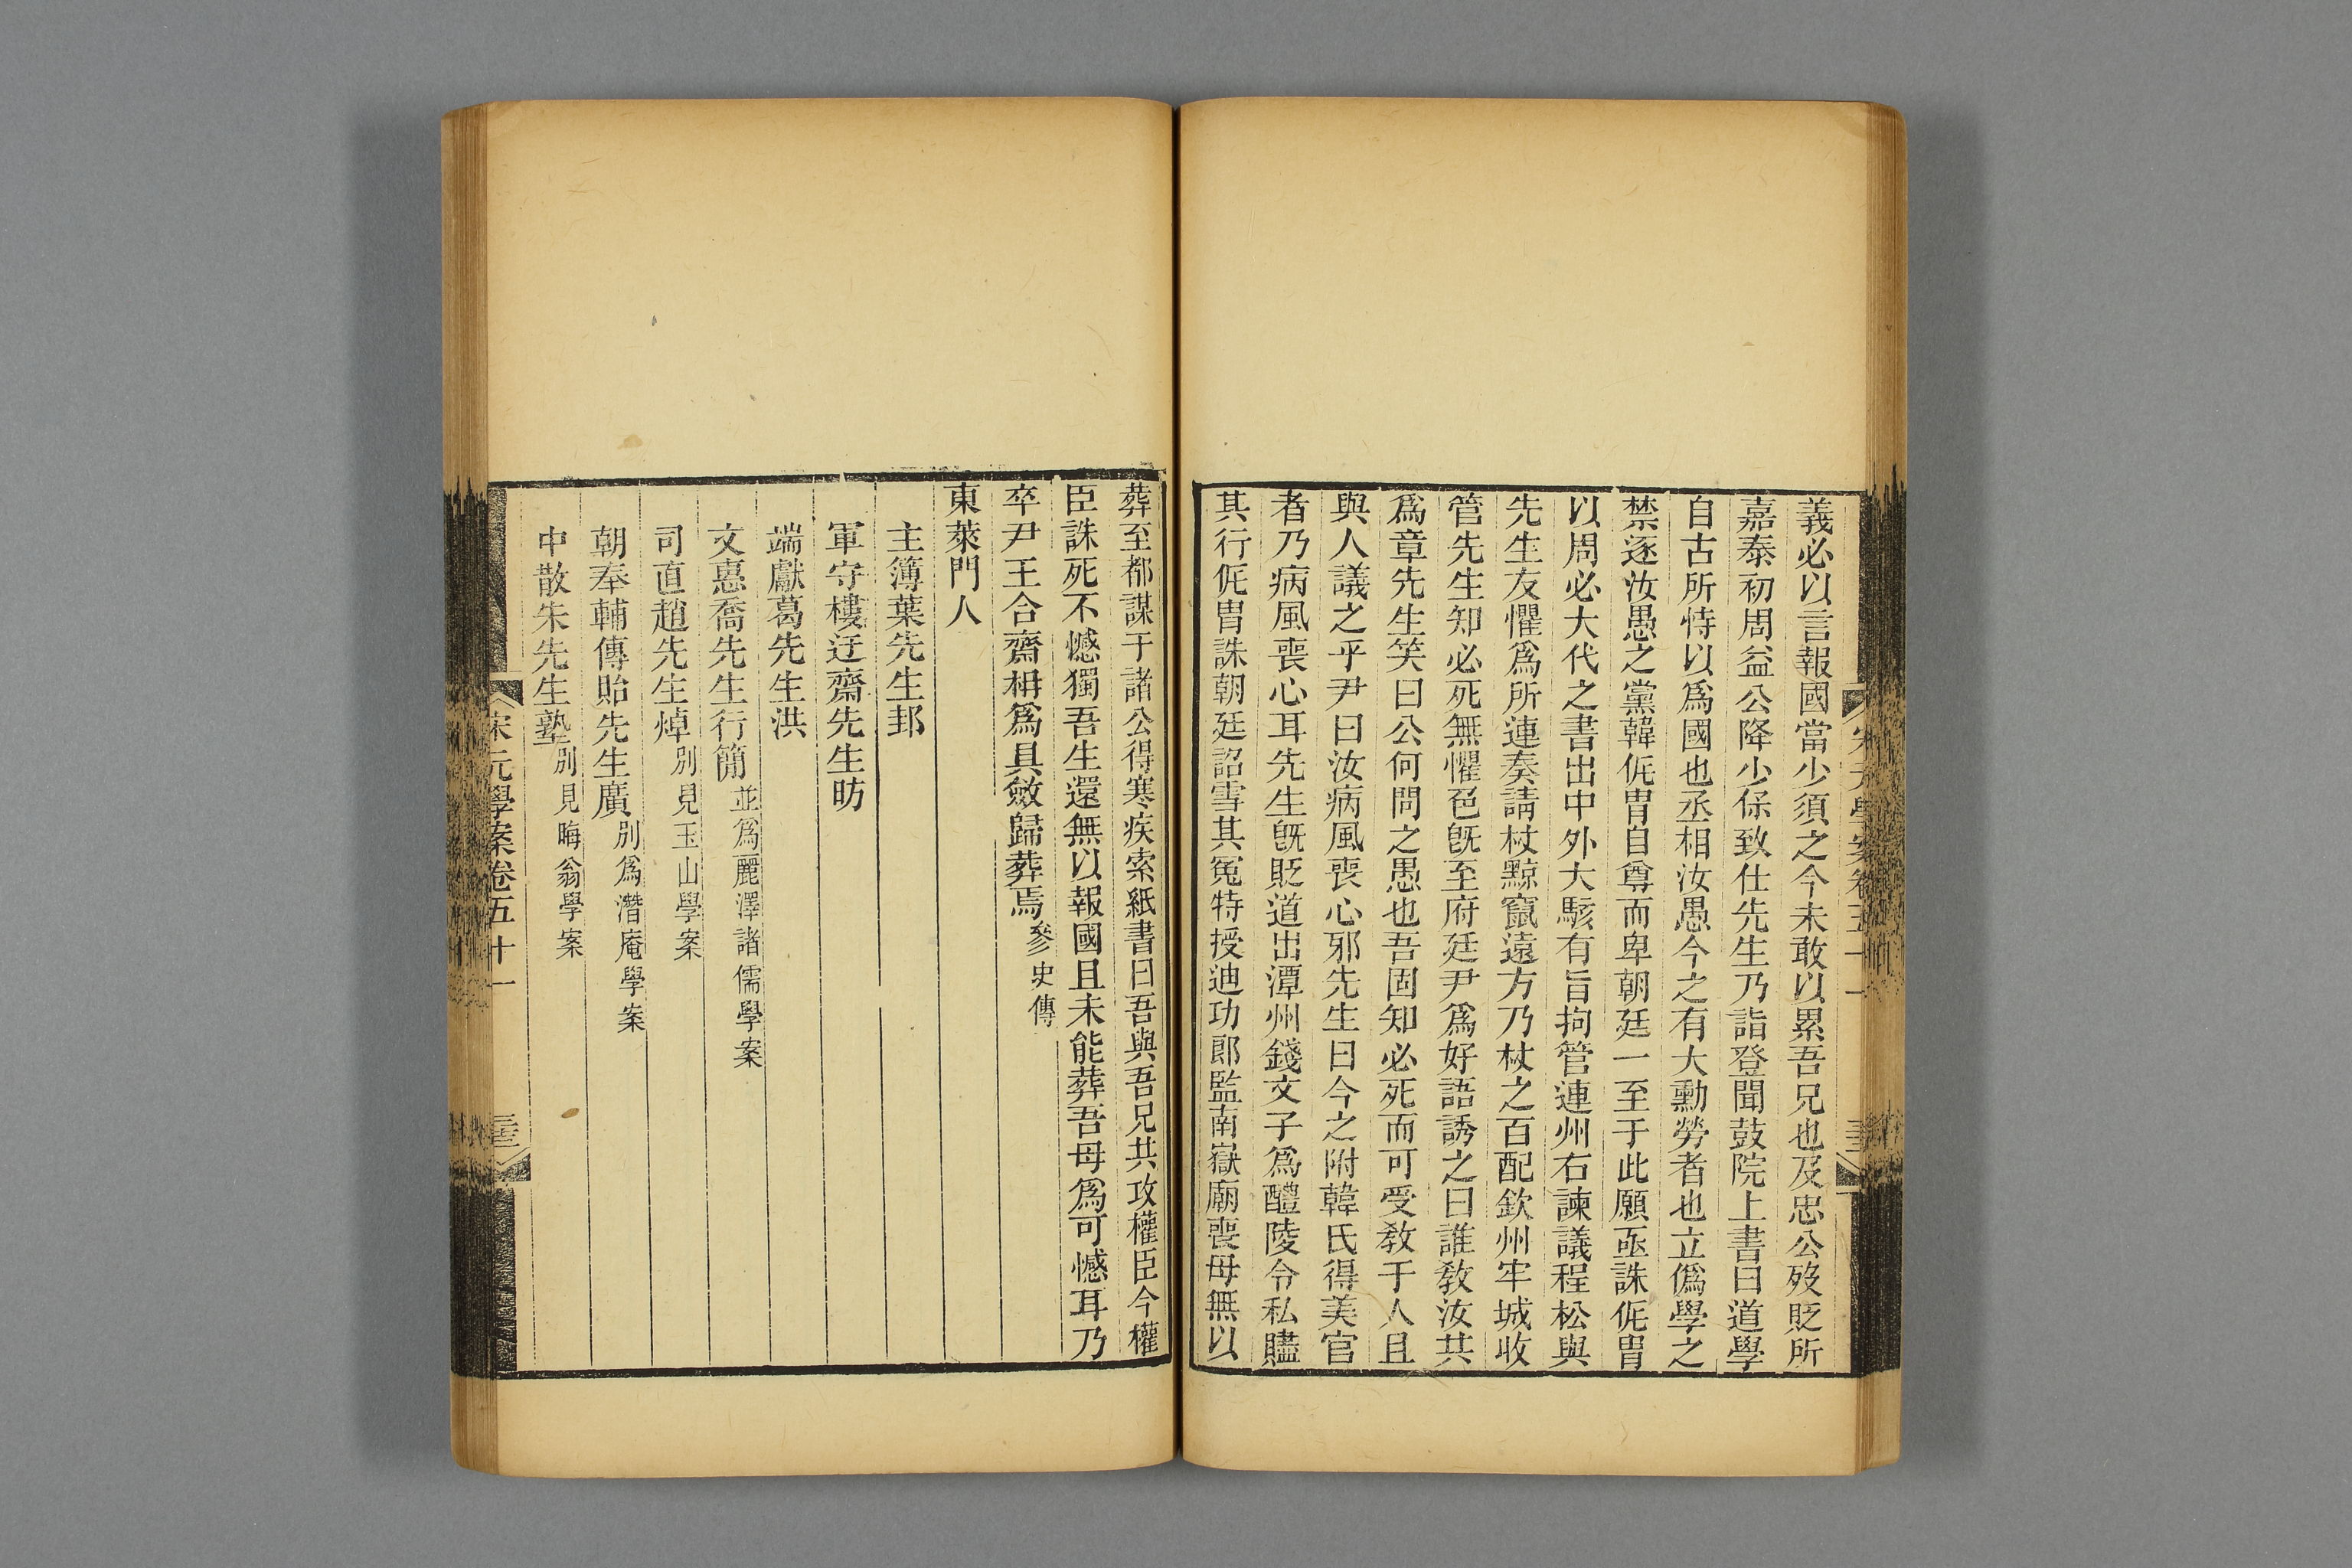 義必以言報國當少須之今未敢以累吾兄也及忠公歿貶所
嘉泰初周益公降少保致仕先生乃詣登聞鼓院上書曰道學
自古所恃以爲國也丞相汝愚今之有大勳勞者也立僞學之
禁逐汝愚之黨韓侂胄自尊而卑朝廷一至于此願亟誅侂胄
以周必大代之書出中外大駭有旨拘管連州右諫議程松與
先生友懼爲所連奏請杖黥竄遠方乃杖之百配欽州牢城收
管先生知必死無懼色旣至府廷尹爲好語誘之曰誰敎汝共
爲章先生笑曰公何問之愚也吾固知必死而可受敎于人且
與人議之乎尹曰汝病風喪心邪先生曰今之附韓氏得美官
者乃病風喪心耳先生旣貶道出潭州錢文子爲醴陵令私贐
其行侂胄誅朝廷詔雪其冤特授迪功郎監南嶽廟喪母無以
葬至都謀于諸公得寒疾索紙書曰吾與吾兄共攻權臣今權
臣誅死不憾獨吾生還無以報國且未能葬吾母爲可憾耳乃
卒尹王合齋枏爲具斂歸葬焉參史傳
東萊門人
主簿葉先生邽
軍守樓迂齋先生昉
端獻葛先生洪
文惠喬先生行簡並爲麗澤諸儒學案
司直趙先生焯別見玉山學案
朝奉輔傳貽先生廣別爲潛庵學案
中散朱先生塾別見晦翁學案
宋元學案卷五十一